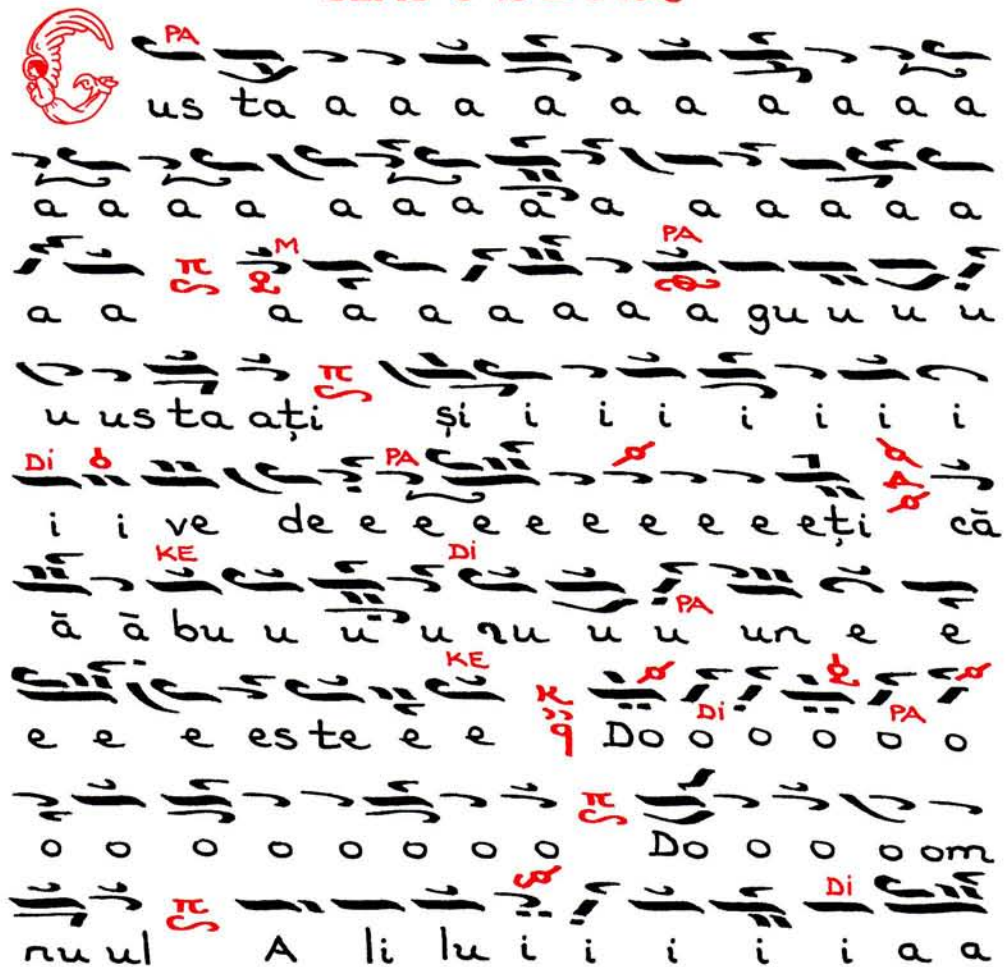 PA
G us ta a a a a a a a a a a
a a a a a a a a a a a a a a
π M PA
a a a a a a a a a gu u u u
π
u us ta ați și i i i i i i i
Di PA
i i ve de e e e e e e e e eți că
KE Di PA
ă ă bu u u u nu u u un e e
KE Di PA
e e e es te e e Do o o o o o
π
o o o o o o o o Do o o o om
π Di
nu ul A li lu i i i i i a a